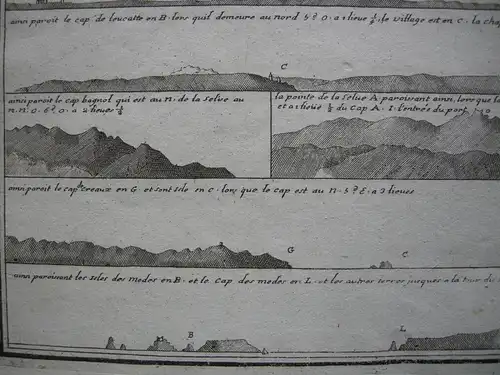 ainsi paroit le cap de leucatte en B. lors quil demeure au nord 5? O. a 1 lieue ½, le village est en C. la chap
C
ainsi paroit le cap bagnol qui est au n. de la selve au
n. n. o. 6? o. a 2 lieues ½
la pointe de la Selve A. paroissant ainsi, lors que la
et a 1 lieue ½ du Cap A. I. l'entrée du port
ainsi paroit le cap de creaux en G. et sont isle en C. lors que le cap est au n. 5? E. a 3 lieues
G
C
ainsi paroissent les Isles des medes en B. et le Cap des medes en L. et les autres terres jusques a la tour du
M
B
L